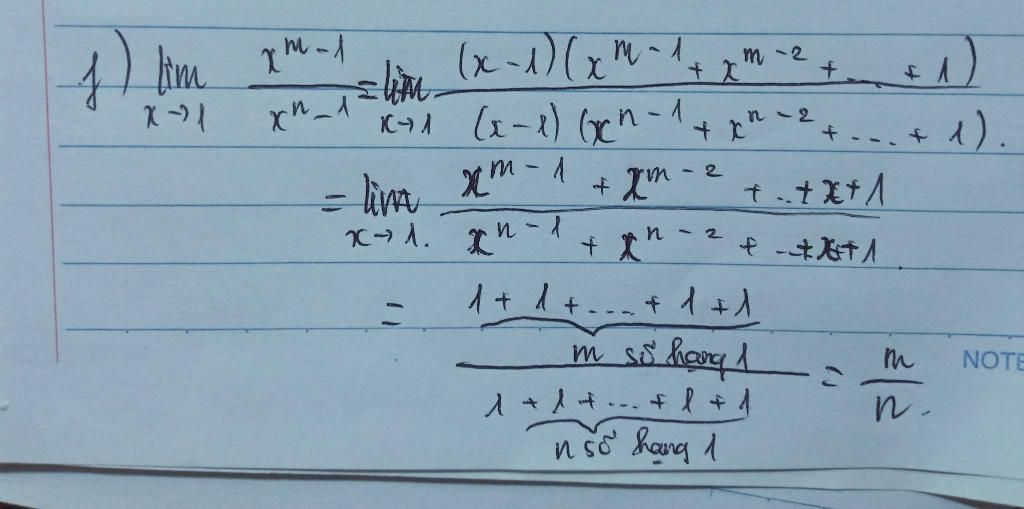 f) lim x→1 x^m - 1 / x^n - 1 = lim x→1 (x - 1)(x^{m-1} + x^{m-2} + ... + 1) / (x - 1)(x^{n-1} + x^{n-2} + .... + 1).
= lim x→1. x^{m-1} + x^{m-2} + ..+ x + 1 / x^{n-1} + x^{n-2} + ..+ x + 1.
= 1 + 1 + .... + 1 + 1 (m số hạng 1) / 1 + 1 + ... + 1 + 1 (n số hạng 1) = m / n.
NOTE